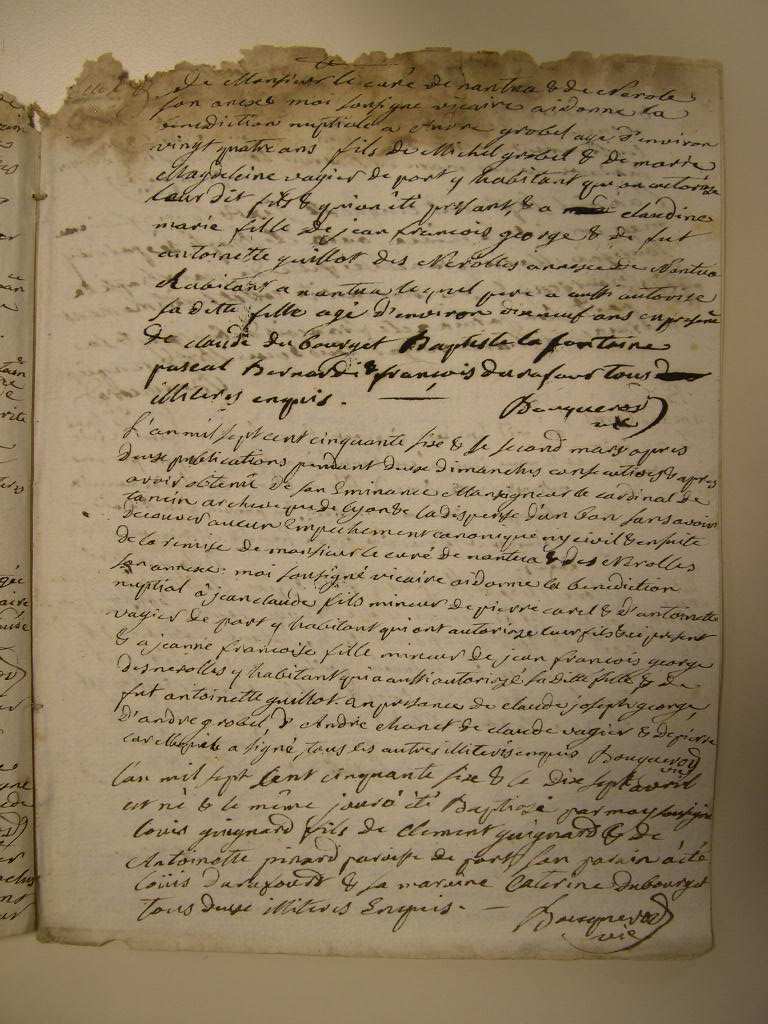 de Monsieur le curé de nantua & de Nerole
son anexe moi sousigné vicaire ai donne la
benediction nuptiale a Andre grobel agé d'environ
vingt quatre ans fils de Michel grobel & de marie
Magdeleine vagier de port y habitant qui on autorise
leur dit fils & qui on été present, & a claudine
marie fille de jean francois george & de fut
antoinette guillot des Nerolles annexe de Nantua
habitant a nantua lequel pere a aussi autorise
sa ditte fille agé d'environ dix neuf ans en presence
de claude du bourget Baptiste la fontaine
pascal Bernard & francois durafour tous
illiteres enquis. Bouquerod
vic
L'an mil sept cent cinquante sixe & le second mars apres
deuxe publications pendant deuxe dimanches consecutives & apres
avoir obtenu de son Eminance Monseigneur le cardinal de
tancin archeveque de lyon & la dispense d'un ban sans avoir
decouver aucun Empechement canonique ny civil & ensuite
de la remise de monsieur le curé de nantua & des Nerolles
son annexe. moi sousigné vicaire ai donne la benediction
nuptial à jean claude fils mineur de pierre carel & d'antoinette
vagier de port y habitant qui ont autorize leur fils & ci present
& a jeanne francoise fille mineur de jean francois george
des nerolles y habitant qui a aussi autorizé sa ditte fille & de
fut antoinette guillot. en presance de claude joseph george,
d'andre grobel, d'Andre chanet de claude vagier & de pierre
carel a signé, tous les autres illiteris enquis Bouquerod
vic
L'an mil sept Cent cinquante sixe & le dix sept avril
est né & le même jour à été Baptizé par moy sousigné
louis guignard fils de clement guignard & de
Antoinette pinard paroisse de port, son parain à été
loüis durafourd & sa maraine Caterine dubourget
tous deuxe illiteres Enquis. — Bouquerod
vic